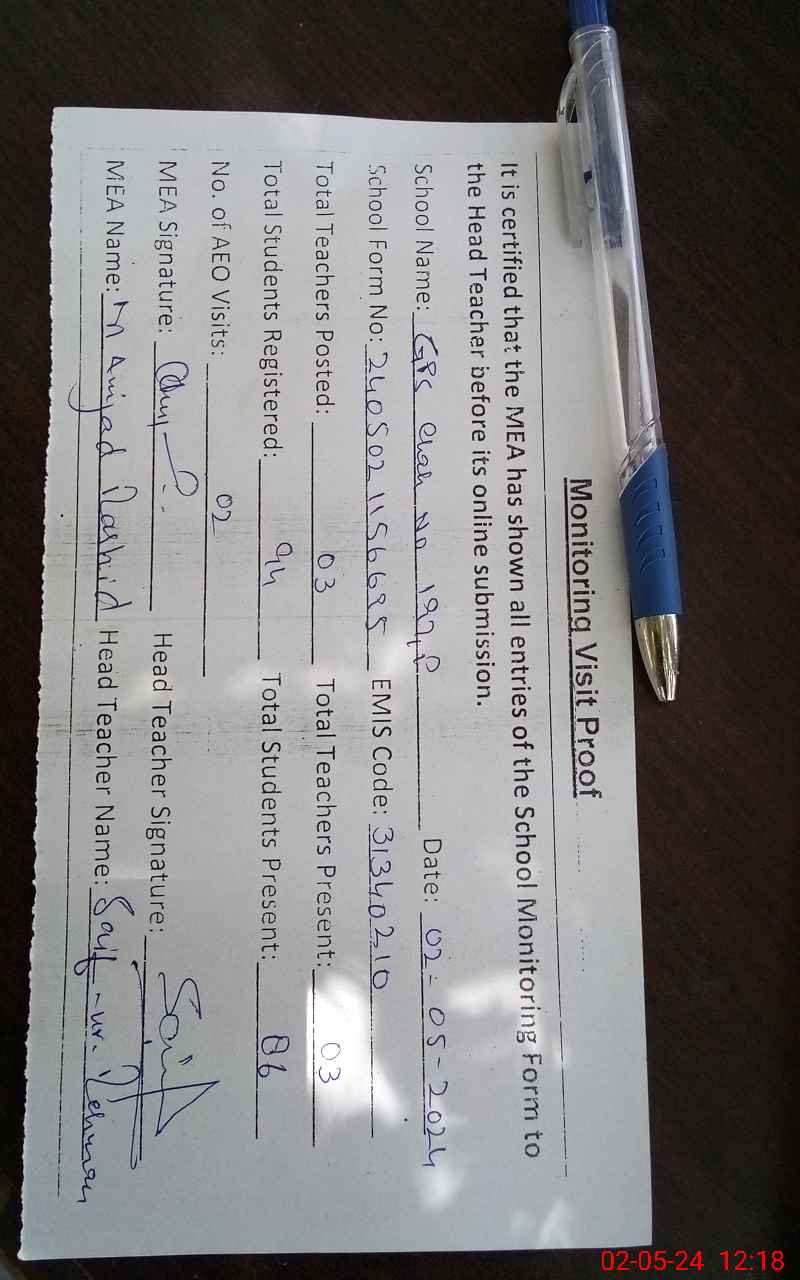 Monitoring Visit Proof
It is certified that the MEA has shown all entries of the School Monitoring Form to
the Head Teacher before its online submission.
School Name: GPS Chak No 190/P Date: 02-05-2024
School Form No: 240502115669 5 EMIS Code: 31340210
Total Teachers Posted: 03 Total Teachers Present: 03
Total Students Registered: 94 Total Students Present: 86
No. of AEO Visits: 02
MEA Signature: Head Teacher Signature: Saif
MEA Name: M Amjad Rashid Head Teacher Name: Saif-ur-Rehman
02-05-24 12:18